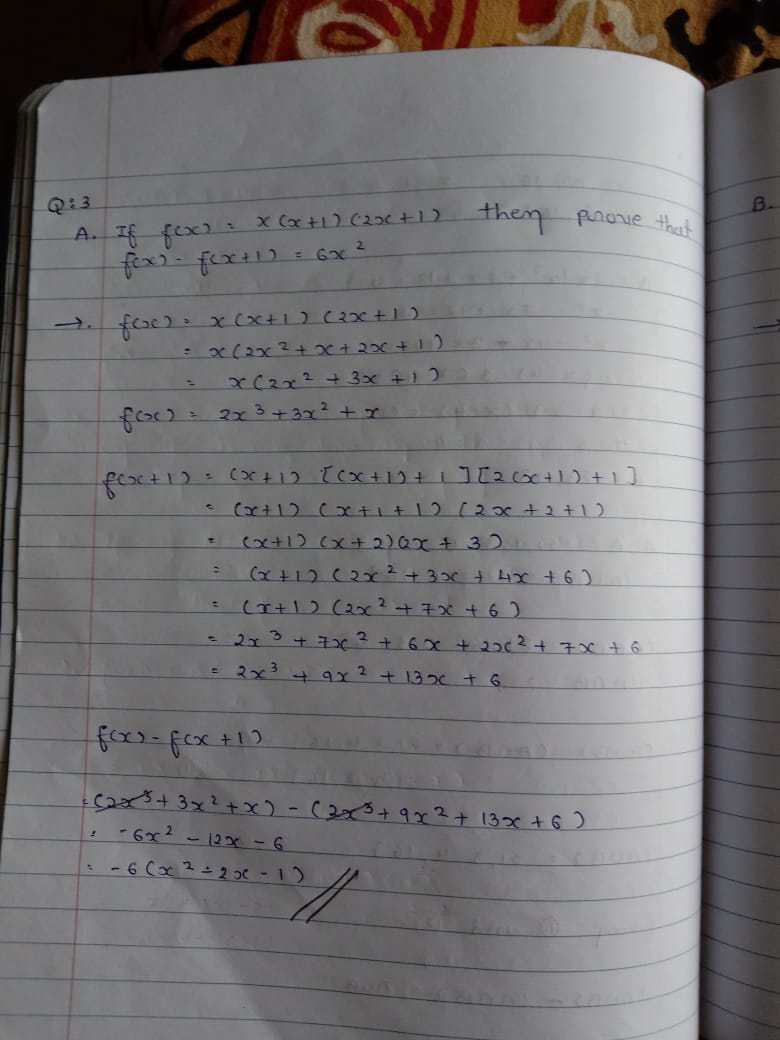 Q:3
A. If f(x) = x(x+1)(2x+1) then prove that
f(x) - f(x+1) = 6x²
→. f(x) = x(x+1)(2x+1)
= x(2x² + x + 2x + 1)
= x(2x² + 3x + 1)
f(x) = 2x³ + 3x² + x
f(x+1) = (x+1) [(x+1)+1][2(x+1)+1]
= (x+1) (x+1+1) (2x+2+1)
= (x+1) (x+2)(2x+3)
= (x+1) (2x² + 3x + 4x + 6)
= (x+1) (2x² + 7x + 6)
= 2x³ + 7x² + 6x + 2x² + 7x + 6
= 2x³ + 9x² + 13x + 6
f(x) - f(x+1)
= (2x³ + 3x² + x) - (2x³ + 9x² + 13x + 6)
= -6x² - 12x - 6
= -6(x² - 2x - 1)
B.